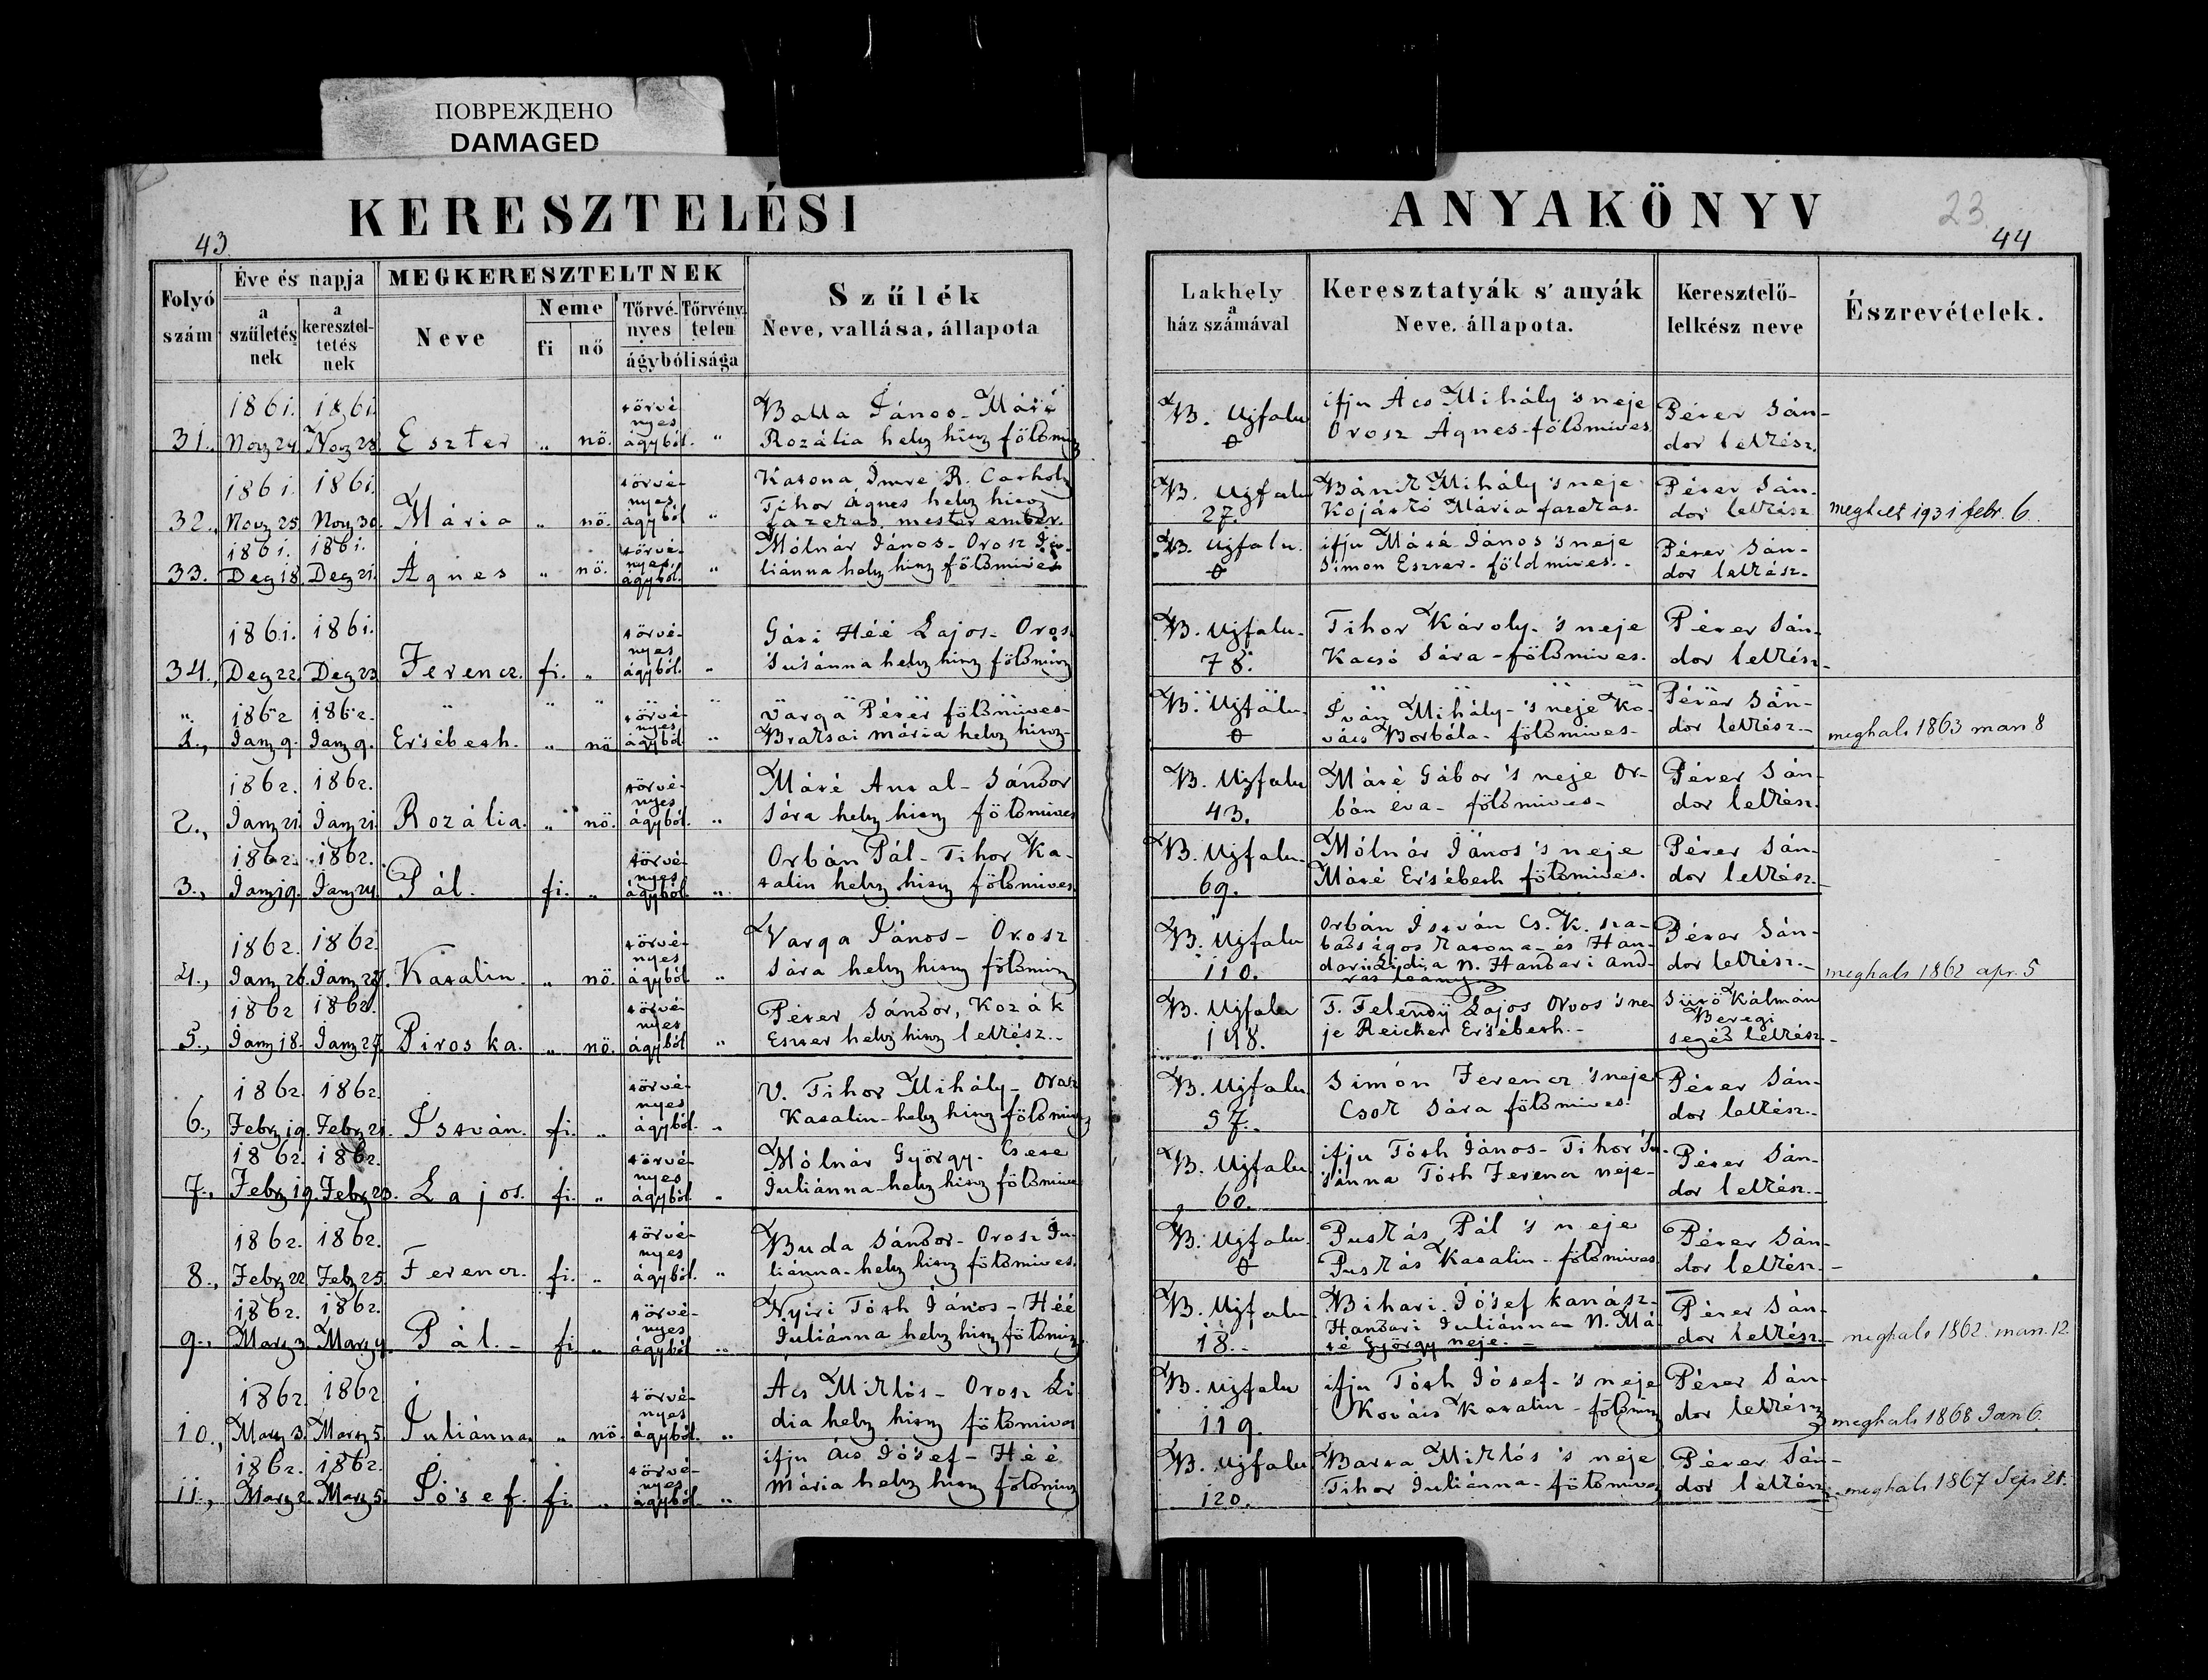 ПОВРЕЖДЕНО
DAMAGED
KERESZTELÉSI
43.
Folyó szám
Éve és napja
a születés nek
a keresztel- tetés nek
MEGKERESZTELTNEK
Neve
Neme
fi
nő
Törvé- nyes
Törvény telen
ágybólisága
Szűlék
Neve, vallása, állapota
ANYAKÖNYV
23
44
Lakhely
a
ház számával
Keresztatyák s' anyák
Neve, állapota.
Keresztelő-
lelkész neve
Észrevételek.
31., 1861. Novz 24. 1861. Novz 28. Eszter „ nő. törvé- nyes ágyból. „ Balla János - Máté
Rozália helvz hisz földmivz
B. Ujfalu
0
ifju Ács Mihály 's neje
Orosz Ágnes-földmives
Péter Sán-
dor lelkész.
32., 1861. Novz 25. 1861. Novz 30. Mária „ nő. törvé- nyes ágyból „ Katona Imre R. Catholy
Tihor Ágnes helvz hisz
fazekas mester ember.
B. Ujfalu
27.
Mihály 's neje
Mária fazekas.
Péter Sán-
dor lelkész
meghalt 1931 febr. 6
33. 1861. Dez 18. 1861. Dez 21. Ágnes „ nő. törvé- nyes ágyból. „ Mólnár János - Orosz Ju-
liánna helvz hisz földmives
B. Ujfalu.
0
ifju Máté János 's neje
Simon Eszter - földmives.-
Péter Sán-
dor lelkész.
34., 1861. Dez 22. 1861. Dez 23 Ferencz. fi. „ törvé- nyes ágyból. „ Héé Lajos - Orosz
'Su'sánna helvz hisz földmivz
B. Ujfalu.
78.
Tihor Károly- 's neje
Kacsó Sára - földmives.
Péter Sán-
dor lelkész
1., 1862 Janz 9. 1862. Janz 9. Er'sébeth. „ nő törvé- nyes ágyból „ Varga Péter földmives-
Mária helvz hisz-
B. Ujfalu.
0
Iván Mihály- 's neje Ko-
vács Borbála - földmives-
Péter Sán-
dor lelkész.-
meghalt 1863 mart 8
2., 1862. Janz 21. 1862. Janz 21. Rozália. „ nő. törvé- nyes ágyból. „ Máté Antal - Sándor
Sára helvz hisz földmives
B. Ujfalu
43.
Máté Gábor 's neje Or-
bán Éva - földmives-
Péter Sán-
dor lelkész.
3., 1862. Janz 19. 1862. Janz 24. Pál. fi. „ törvé- nyes ágyból. „ Orbán Pál - Tihor Ka-
talin helvz hisz földmives
B. Ujfalu.
69.
Mólnár János 's neje
Máté Er'sébeth földmives.
Péter Sán-
dor lelkész.-
4., 1862. Janz 26. 1862. Janz 28. Katalin. „ nő. törvé- nyes ágyból „ Varga János - Orosz
Sára helvz hisz földmivz
B. Ujfalu
110.
Orbán István Cs. K. sza-
badságos katona - és Han-
dari Lidia N. Handari And-
rás leánya
Péter Sán-
dor lelkész.-
meghalt 1862 apr. 5
5., 1862 Janz 18. 1862. Janz 27. Piroska. „ nő. törvé- nyes ágyból „ Péter Sándor, Kozák
Eszter helvz hisz lelkész.-
B. Ujfalu
148.
T. Lajos Orvos 's ne
je Er'sébeth.-
Kálmán
Beregi
segéd lelkész.-
6., 1862. Febrz 19. 1862. Febrz 21. István. fi. „ törvé- nyes ágyból. „ V. Tihor Mihály - Orosz
Katalin - helvz hisz földmivz
B. Ujfalu
57.
Simón Ferencz 's neje
Csok Sára földmives.
Péter Sán-
dor lelkész.-
7., 1862. Febrz 19. 1862. Febrz 23. Lajos. fi. „ törvé- nyes ágyból „ Mólnár György - Csere
Juliánna - helvz hisz földmives
B. Ujfalu
60.
ifju Tóth János - Tihor 'Su-
'sánna Tóth Ferencz neje-
Péter Sán-
dor lelkész.-
8., 1862. Febrz 22 1862. Febz 25. Ferencz. fi. „ törvé- nyes ágyból. „ Buda Sándor - Orosz Ju-
liánna - helvz hisz földmives.
B. Ujfalu.
0
Puskás Pál 's neje
Puskás Katalin - földmives
Péter Sán-
dor lelkész.-
9., 1862. Marz 3. 1862. Marz 4. Pál.- fi „ törvé- nyes ágyból „ Nyiri Tóth János - Héé
Juliánna helvz hisz földmivz.
B. Ujfalu
18.-
Bihari Jó'sef kanász-
Handari Juliánna N. Má-
té György neje.-
Péter Sán-
dor lelkész.-
meghalt 1862. mart. 12.
10., 1862. Marz 3. 1862 Marz 5. Juliánna. „ nő. törvé- nyes ágyból. „ Ács Miklós - Orosz Li-
dia helvz hisz földmives
B. Ujfalu
119.
ifju Tóth Jó'sef - 's neje
Kovács Katalin - földmivz
Péter Sán-
dor lelkész
meghalt 1868 Jan 6.
11., 1862. Marz 2. 1862. Marz 5. Jó'sef. fi. „ törvé- nyes ágyból. „ ifju Ács Jó'sef - Héé
Mária helvz hisz földmivz
B. Ujfalu
120.
Barta Miklós 's neje
Tihor Juliánna - földmives
Péter Sán-
dor lelkész
meghalt 1867 Sept 21.